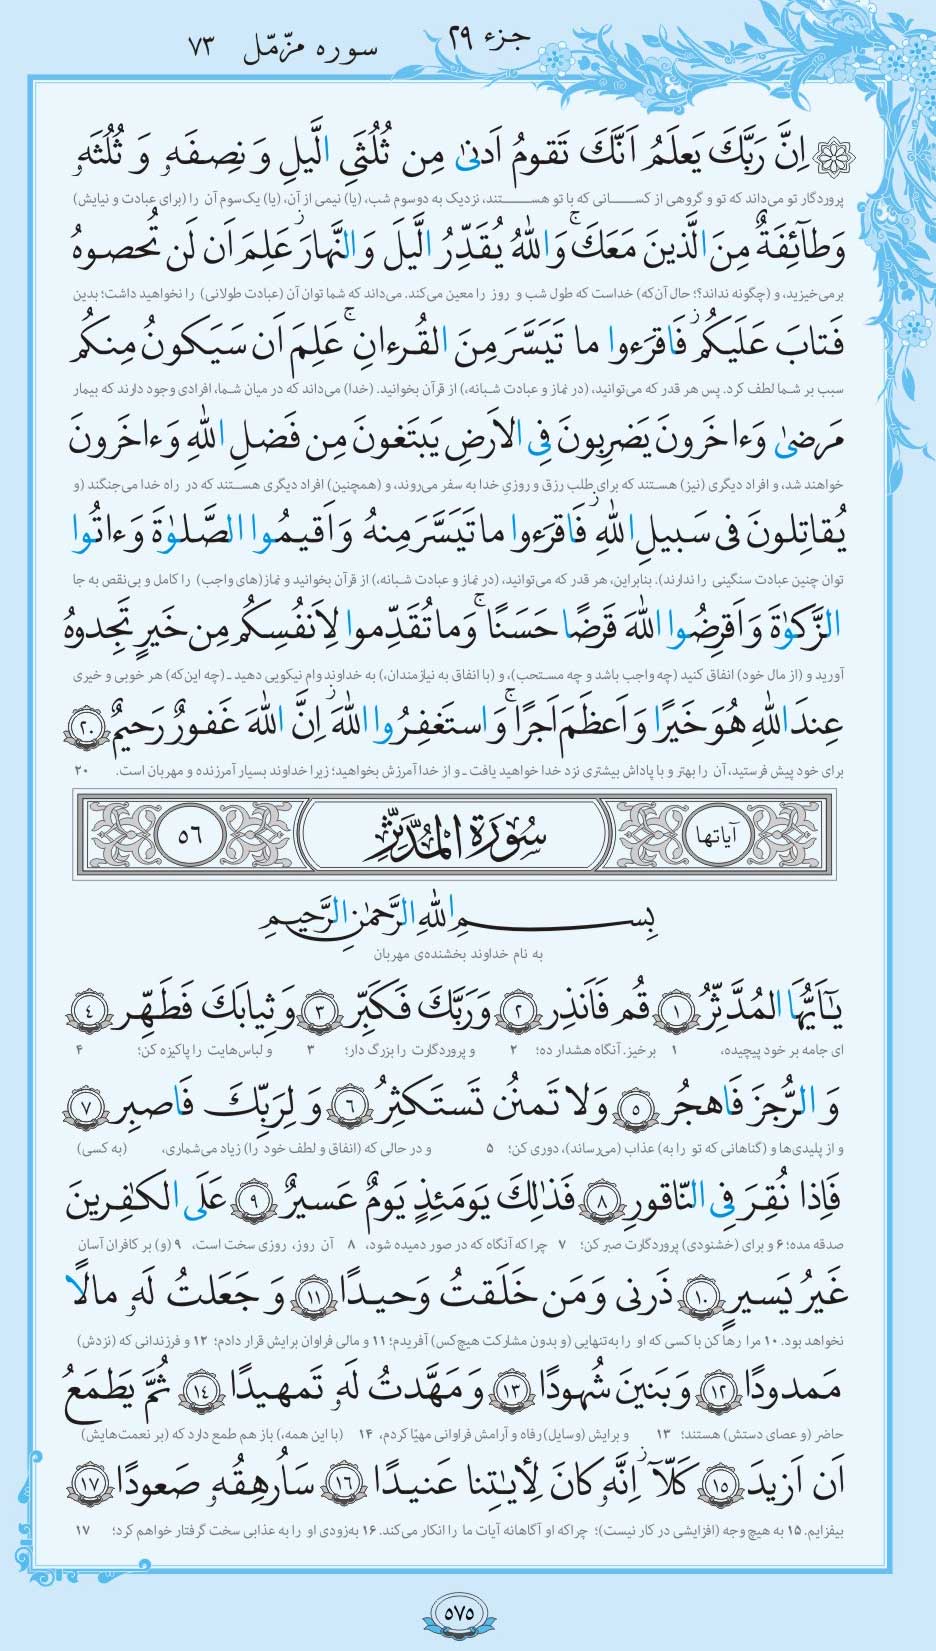 جزء ۲۹
سوره مزّمّل ۷۳
اِنَّ رَبَّكَ يَعلَمُ اَنَّكَ تَقومُ اَدنىٰ مِن ثُلُثَىِ الَّيلِ وَ نِصفَهُ وَ ثُلُثَهُ
پروردگار تو می‌داند که تو و گروهی از کسانی که با تو هستند، نزدیک به دوسوم شب، (یا) نیمی از آن، (یا) یک‌سوم آن را (برای عبادت و نیایش)
وَ طآئِفَةٌ مِنَ الَّذينَ مَعَكَ ۚ وَ اللّٰهُ يُقَدِّرُ الَّيلَ وَ النَّهارَ ۚ عَلِمَ اَن لَن تُحصوهُ
برمی‌خیزید، و (چگونه نداند؟؛ حال آن‌که) خداست که طول شب و روز را معین می‌کند. می‌داند که شما توان آن (عبادت طولانی) را نخواهید داشت؛ بدین
فَتابَ عَلَيكُم ۖ فَاقرَءوا ما تَيَسَّرَ مِنَ القُرءانِ ۚ عَلِمَ اَن سَيَكونُ مِنكُم
سبب بر شما لطف کرد. پس هر قدر که می‌توانید، (در نماز و عبادت شبانه،) از قرآن بخوانید. (خدا) می‌داند که در میان شما، افرادی وجود دارند که بیمار
مَرضىٰ وَ ءاخَرونَ يَضرِبونَ فِى الاَرضِ يَبتَغونَ مِن فَضلِ اللّٰهِ وَ ءاخَرونَ
خواهند شد، و افراد دیگری (نیز) هستند که برای طلب رزق و روزیِ خدا به سفر می‌روند، و (همچنین) افراد دیگری هستند که در راه خدا می‌جنگند (و
يُقاتِلونَ فى سَبيلِ اللّٰهِ ۖ فَاقرَءوا ما تَيَسَّرَ مِنهُ وَ اَقيمُوا الصَّلوٰةَ وَ ءاتُوا
توان چنین عبادت سنگینی را ندارند). بنابراین، هر قدر که می‌توانید، (در نماز و عبادت شبانه،) از قرآن بخوانید و نماز(های واجب) را کامل و بی‌نقص به جا
الزَّكوٰةَ وَ اَقرِضُوا اللّٰهَ قَرضًا حَسَنًا ۚ وَ ما تُقَدِّموا لِاَنفُسِكُم مِن خَيرٍ تَجِدوهُ
آورید و (از مال خود) انفاق کنید (چه واجب باشد و چه مستحب)، و (با انفاق به نیازمندان،) به خداوند وام نیکویی دهید ـ (چه این‌که) هر خوبی و خیری
عِندَ اللّٰهِ هُوَ خَيرًا وَ اَعظَمَ اَجرًا ۚ وَ استَغفِرُوا اللّٰهَ ۖ اِنَّ اللّٰهَ غَفورٌ رَحيمٌ ۲۰
برای خود پیش فرستید، آن را بهتر و با پاداش بیشتری نزد خدا خواهید یافت ـ و از خدا آمرزش بخواهید؛ زیرا خداوند بسیار آمرزنده و مهربان است. ۲۰
آیاتها سُورَةُ المُدَّثِّر ۵۶
بِسمِ اللّٰهِ الرَّحمٰنِ الرَّحيمِ
به نام خداوند بخشنده‌ی مهربان
يٰٓاَيُّهَا المُدَّثِّرُ ۱ قُم فَاَنذِر ۲ وَ رَبَّكَ فَكَبِّر ۳ وَ ثِيابَكَ فَطَهِّر ۴
ای جامه بر خود پیچیده، ۱ برخیز. آنگاه هشدار ده؛ ۲ و پروردگارت را بزرگ دار؛ ۳ و لباس‌هایت را پاکیزه کن؛ ۴
وَ الرُّجزَ فَاهجُر ۵ وَ لا تَمنُن تَستَكثِرُ ۶ وَ لِرَبِّكَ فَاصبِر ۷
و از پلیدی‌ها و (گناهانی که تو را به) عذاب (می‌رساند)، دوری کن؛ ۵ و در حالی که (انفاق و لطف خود را) زیاد می‌شماری، (به کسی)
فَاِذا نُقِرَ فِى النّاقورِ ۸ فَذٰلِكَ يَومَئِذٍ يَومٌ عَسيرٌ ۹ عَلَى الكٰفِرينَ
صدقه مده؛ ۶ و برای (خشنودی) پروردگارت صبر کن؛ ۷ چرا که آنگاه که در صور دمیده شود، ۸ آن روز، روزی سخت است، ۹ (و) بر کافران آسان
غَيرُ يَسيرٍ ۱۰ ذَرنى وَ مَن خَلَقتُ وَحيدًا ۱۱ وَ جَعَلتُ لَهُ مالًا
نخواهد بود. ۱۰ مرا رها کن با کسی که او را به‌تنهایی (و بدون مشارکت هیچ‌کس) آفریدم؛ ۱۱ و مالی فراوان برایش قرار دادم؛ ۱۲ و فرزندانی که (نزدش)
مَمدودًا ۱۲ وَ بَنينَ شُهودًا ۱۳ وَ مَهَّدتُ لَهُ تَمهيدًا ۱۴ ثُمَّ يَطمَعُ
حاضر (و عصای دستش) هستند؛ ۱۳ و برایش (وسایل) رفاه و آرامش فراوانی مهیّا کردم، ۱۴ (با این همه،) باز هم طمع دارد که (بر نعمت‌هایش)
اَن اَزيدَ ۱۵ كَلّآ ۖ اِنَّهُ كانَ لِأيٰتِنا عَنيدًا ۱۶ سَاُرهِقُهُ صَعودًا ۱۷
بیفزایم. ۱۵ به هیچ وجه (افزایشی در کار نیست)؛ چراکه او آگاهانه آیات ما را انکار می‌کند. ۱۶ به‌زودی او را به عذابی سخت گرفتار خواهم کرد؛ ۱۷
۵۷۵